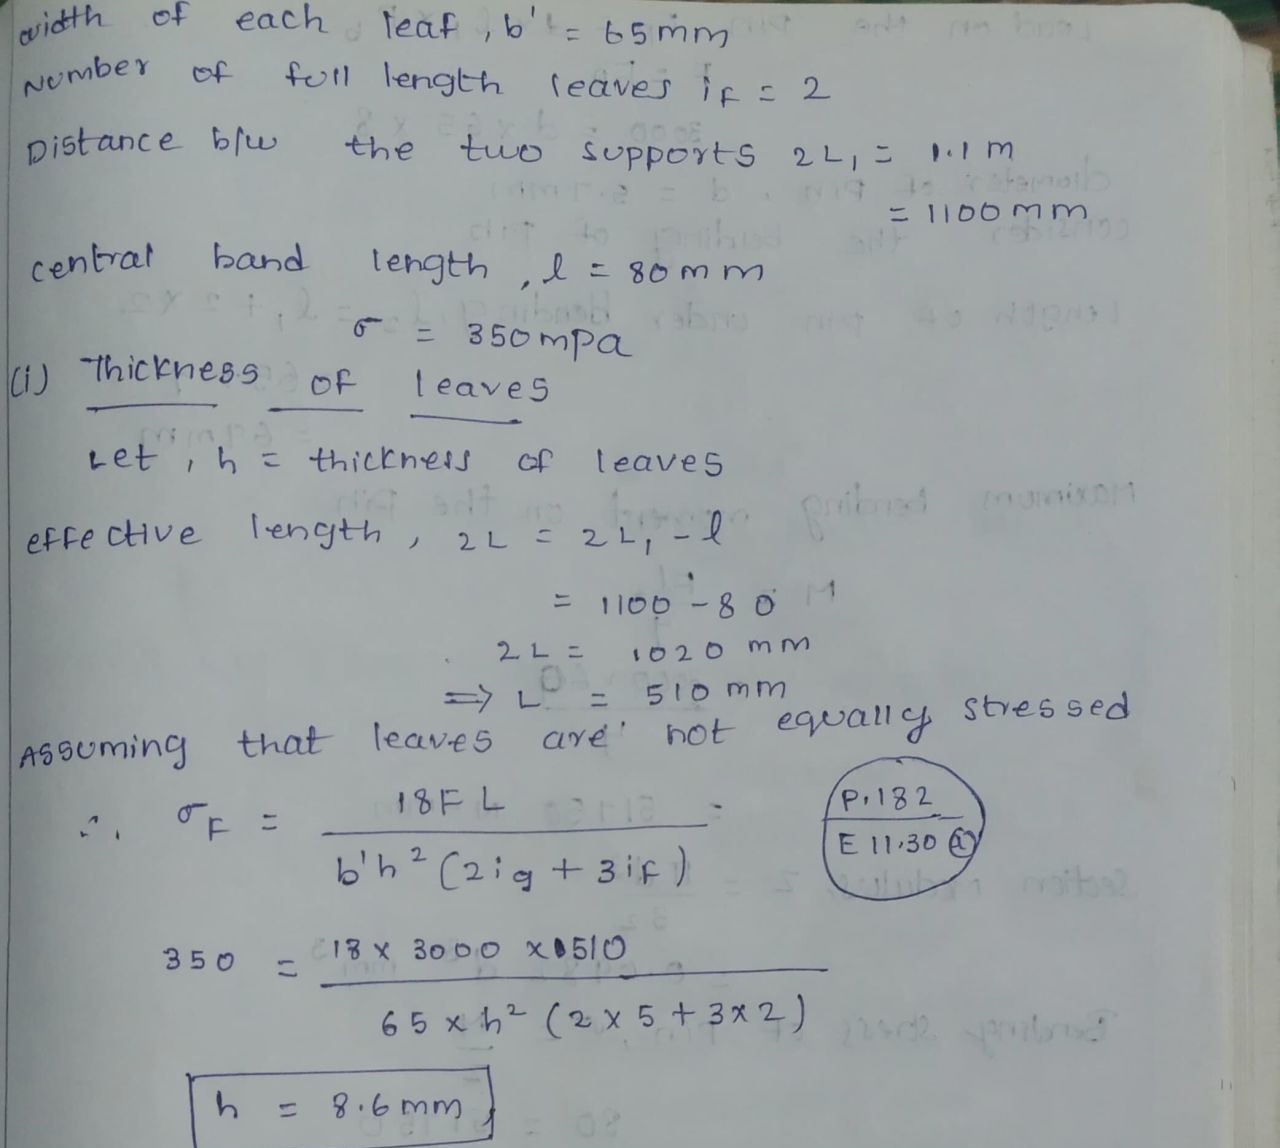 width of each leaf, b' = 65mm
Number of full length leaves iF = 2
Distance b/w the two supports 2L₁ = 1.1m
= 1100mm
central band length, l = 80mm
σ = 350mpa
(i) Thickness of leaves
Let, h = thickness of leaves
effective length, 2L = 2L₁ - l
= 1100 - 80
2L = 1020 mm
=> L = 510 mm
Assuming that leaves are not equally stressed
∴ σF = 18FL / b'h²(2ig + 3iF)
P.182
E 11.30
350 = 18 x 3000 x 510 / 65 x h² (2 x 5 + 3 x 2)
h = 8.6mm